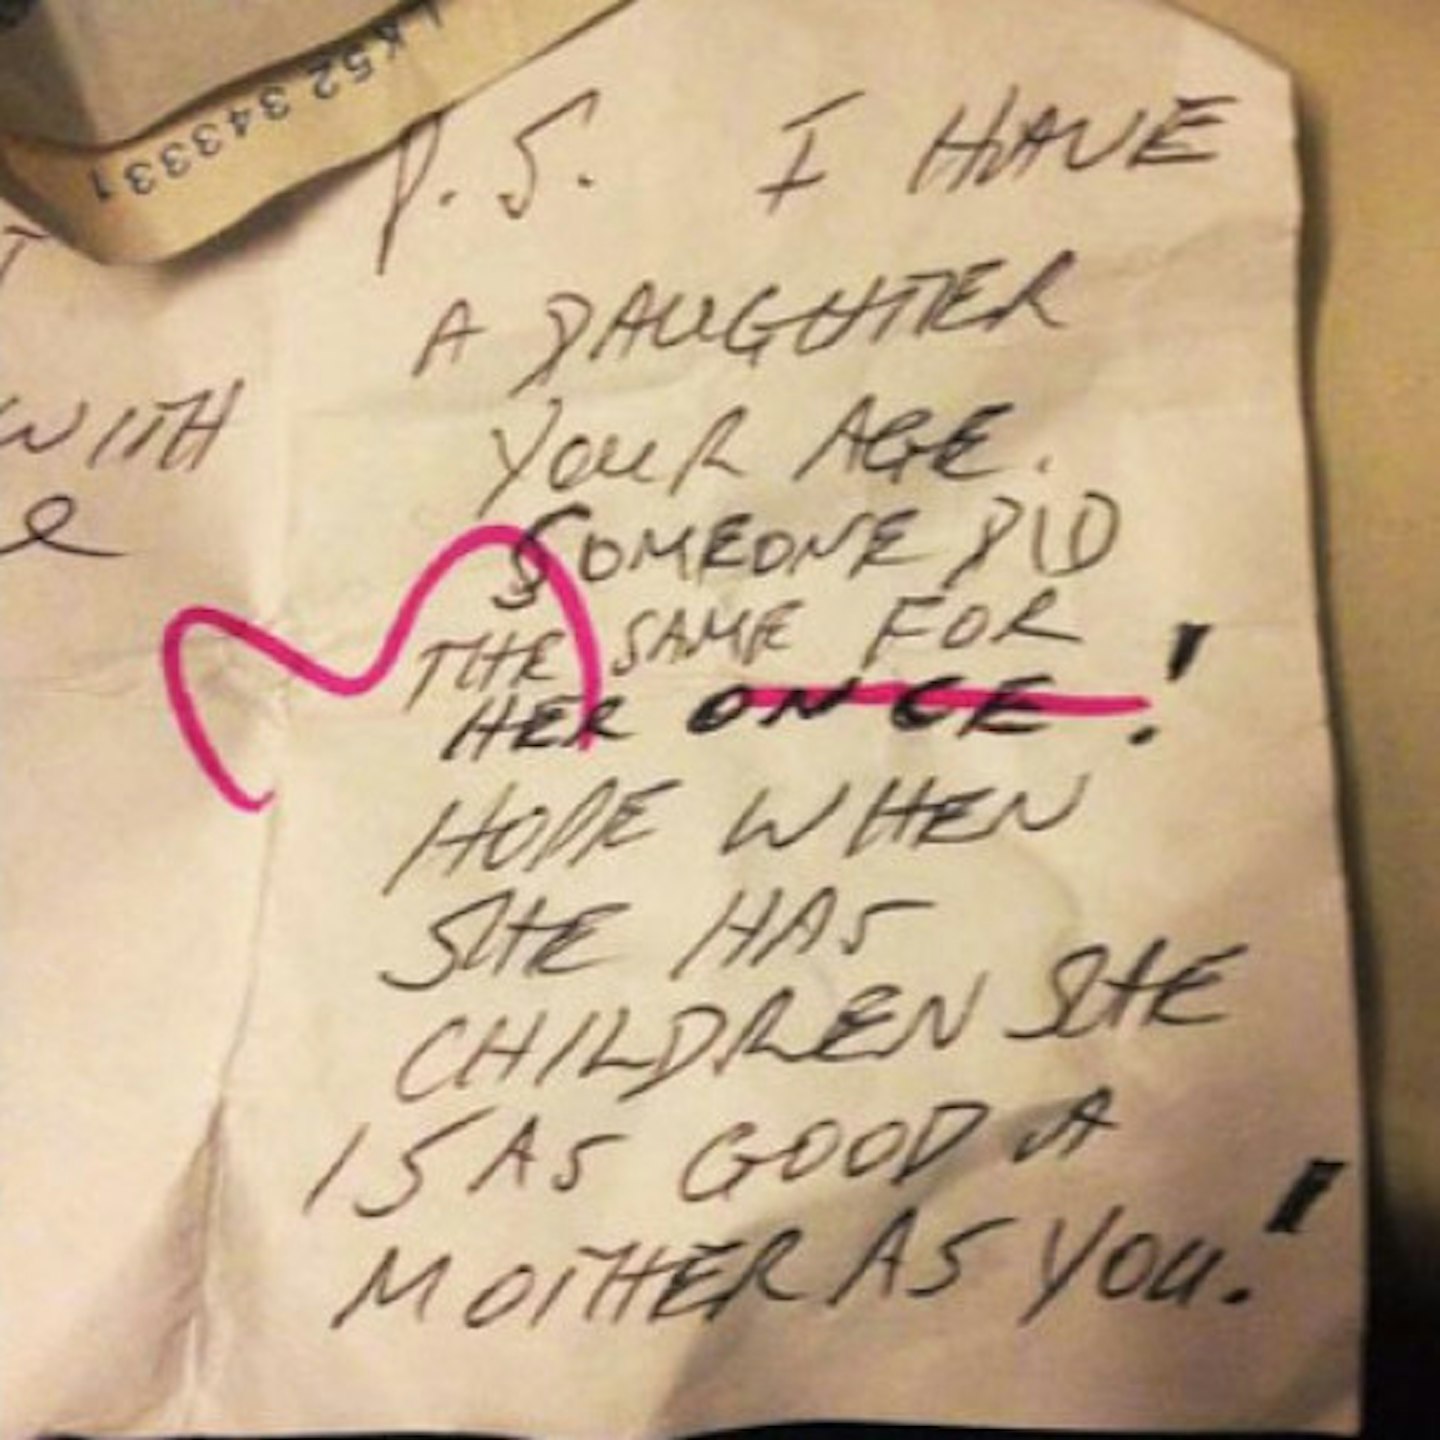 LK52 343331
P.S. I HAVE
A DAUGHTER
YOUR AGE.
SOMEONE DID
THE SAME FOR
HER ONCE!
HOPE WHEN
SHE HAS
CHILDREN SHE
IS AS GOOD A
MOTHER AS YOU!
WITH